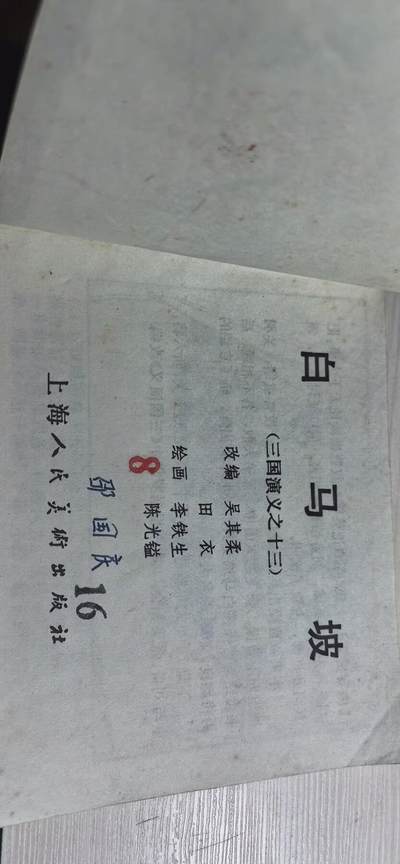 白马坡
(三国演义之十三)
改编 吴其柔
田衣
绘画 李铁生
陈光镒
8
邵国庆
16
上海人民美術出版社